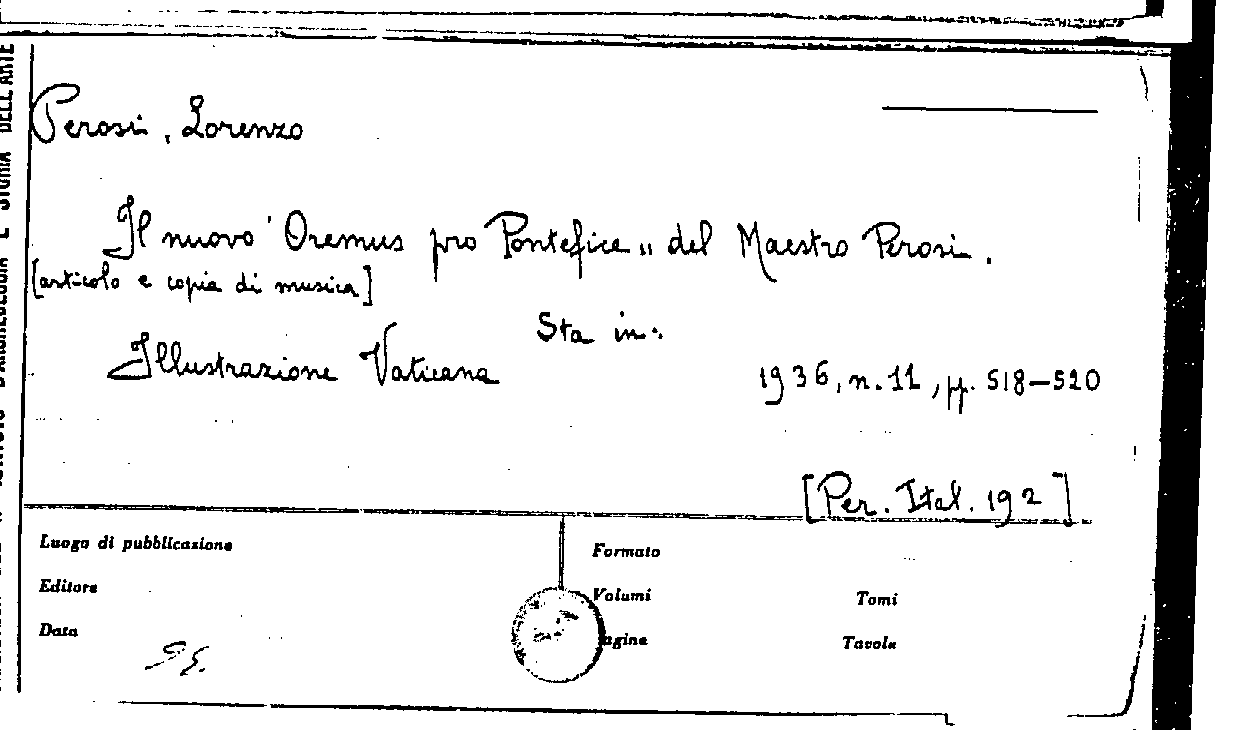 Perosi, Lorenzo
Il nuovo 'Oremus pro Pontefice „ del Maestro Perosi.
[articolo e copia di musica]
Sta in:
Illustrazione Vaticana 1936, n. 11, pp. 518-520
[Per. Ital. 192]
Luogo di pubblicazione
Formato
Editore
Volumi
Tomi
Data
agine
Tavole
E STORIA DELL'ARTE